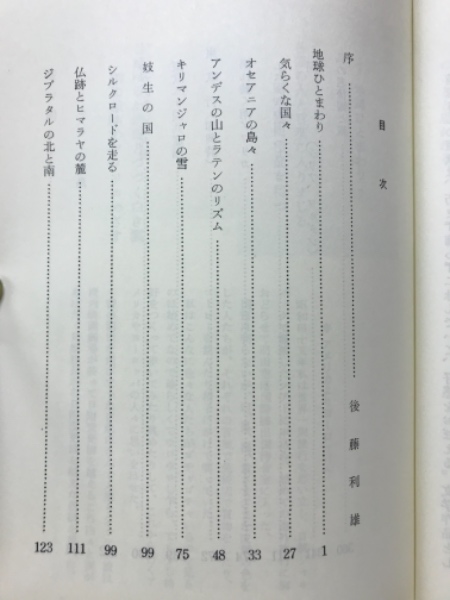 目次
序……後藤利雄
地球ひとまわり……1
気らくな国々……27
オセアニアの島々……33
アンデスの山とラテンのリズム……48
キリマンジャロの雪……75
妓生の国……99
シルクロードを走る……99
仏跡とヒマラヤの麓……111
ジブラタルの北と南……123